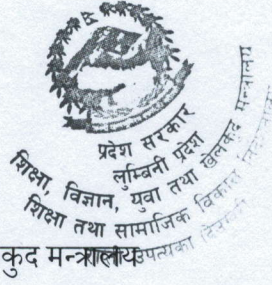 प्रदेश सरकार
लुम्बिनी प्रदेश
शिक्षा, विज्ञान, युवा तथा खेलकुद मन्त्रालय
शिक्षा तथा सामाजिक विकास
कुद मन्त्रालय